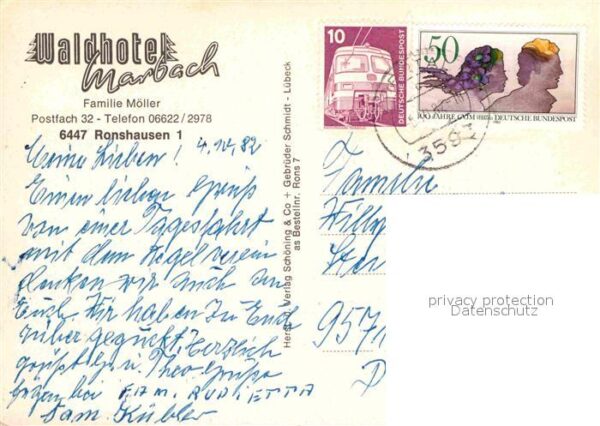 Waldhotel
Marbach
Familie Möller
Postfach 32 - Telefon 06622/2978
6447 Ronshausen 1
Meine Lieben! 4.10.82
Einen lieben Gruß
von einer Tagesfahrt
mit dem Kegelverein
denken wir auch an
Euch. Wir haben zu Euch
rüber geguckt. Herzlich
grüßt Theo Grüße
bei FAM. RUDI ETTA
Fam. Kübler
Herst. u. Verlag Schöning & Co + Gebrüder Schmidt - Lübeck
as Bestellnr. Rons 7
10
DEUTSCHE BUNDESPOST
50
100 JAHRE CVJM DEUTSCHE BUNDESPOST
3593
Familie
Willy
957
D
privacy protection
Datenschutz